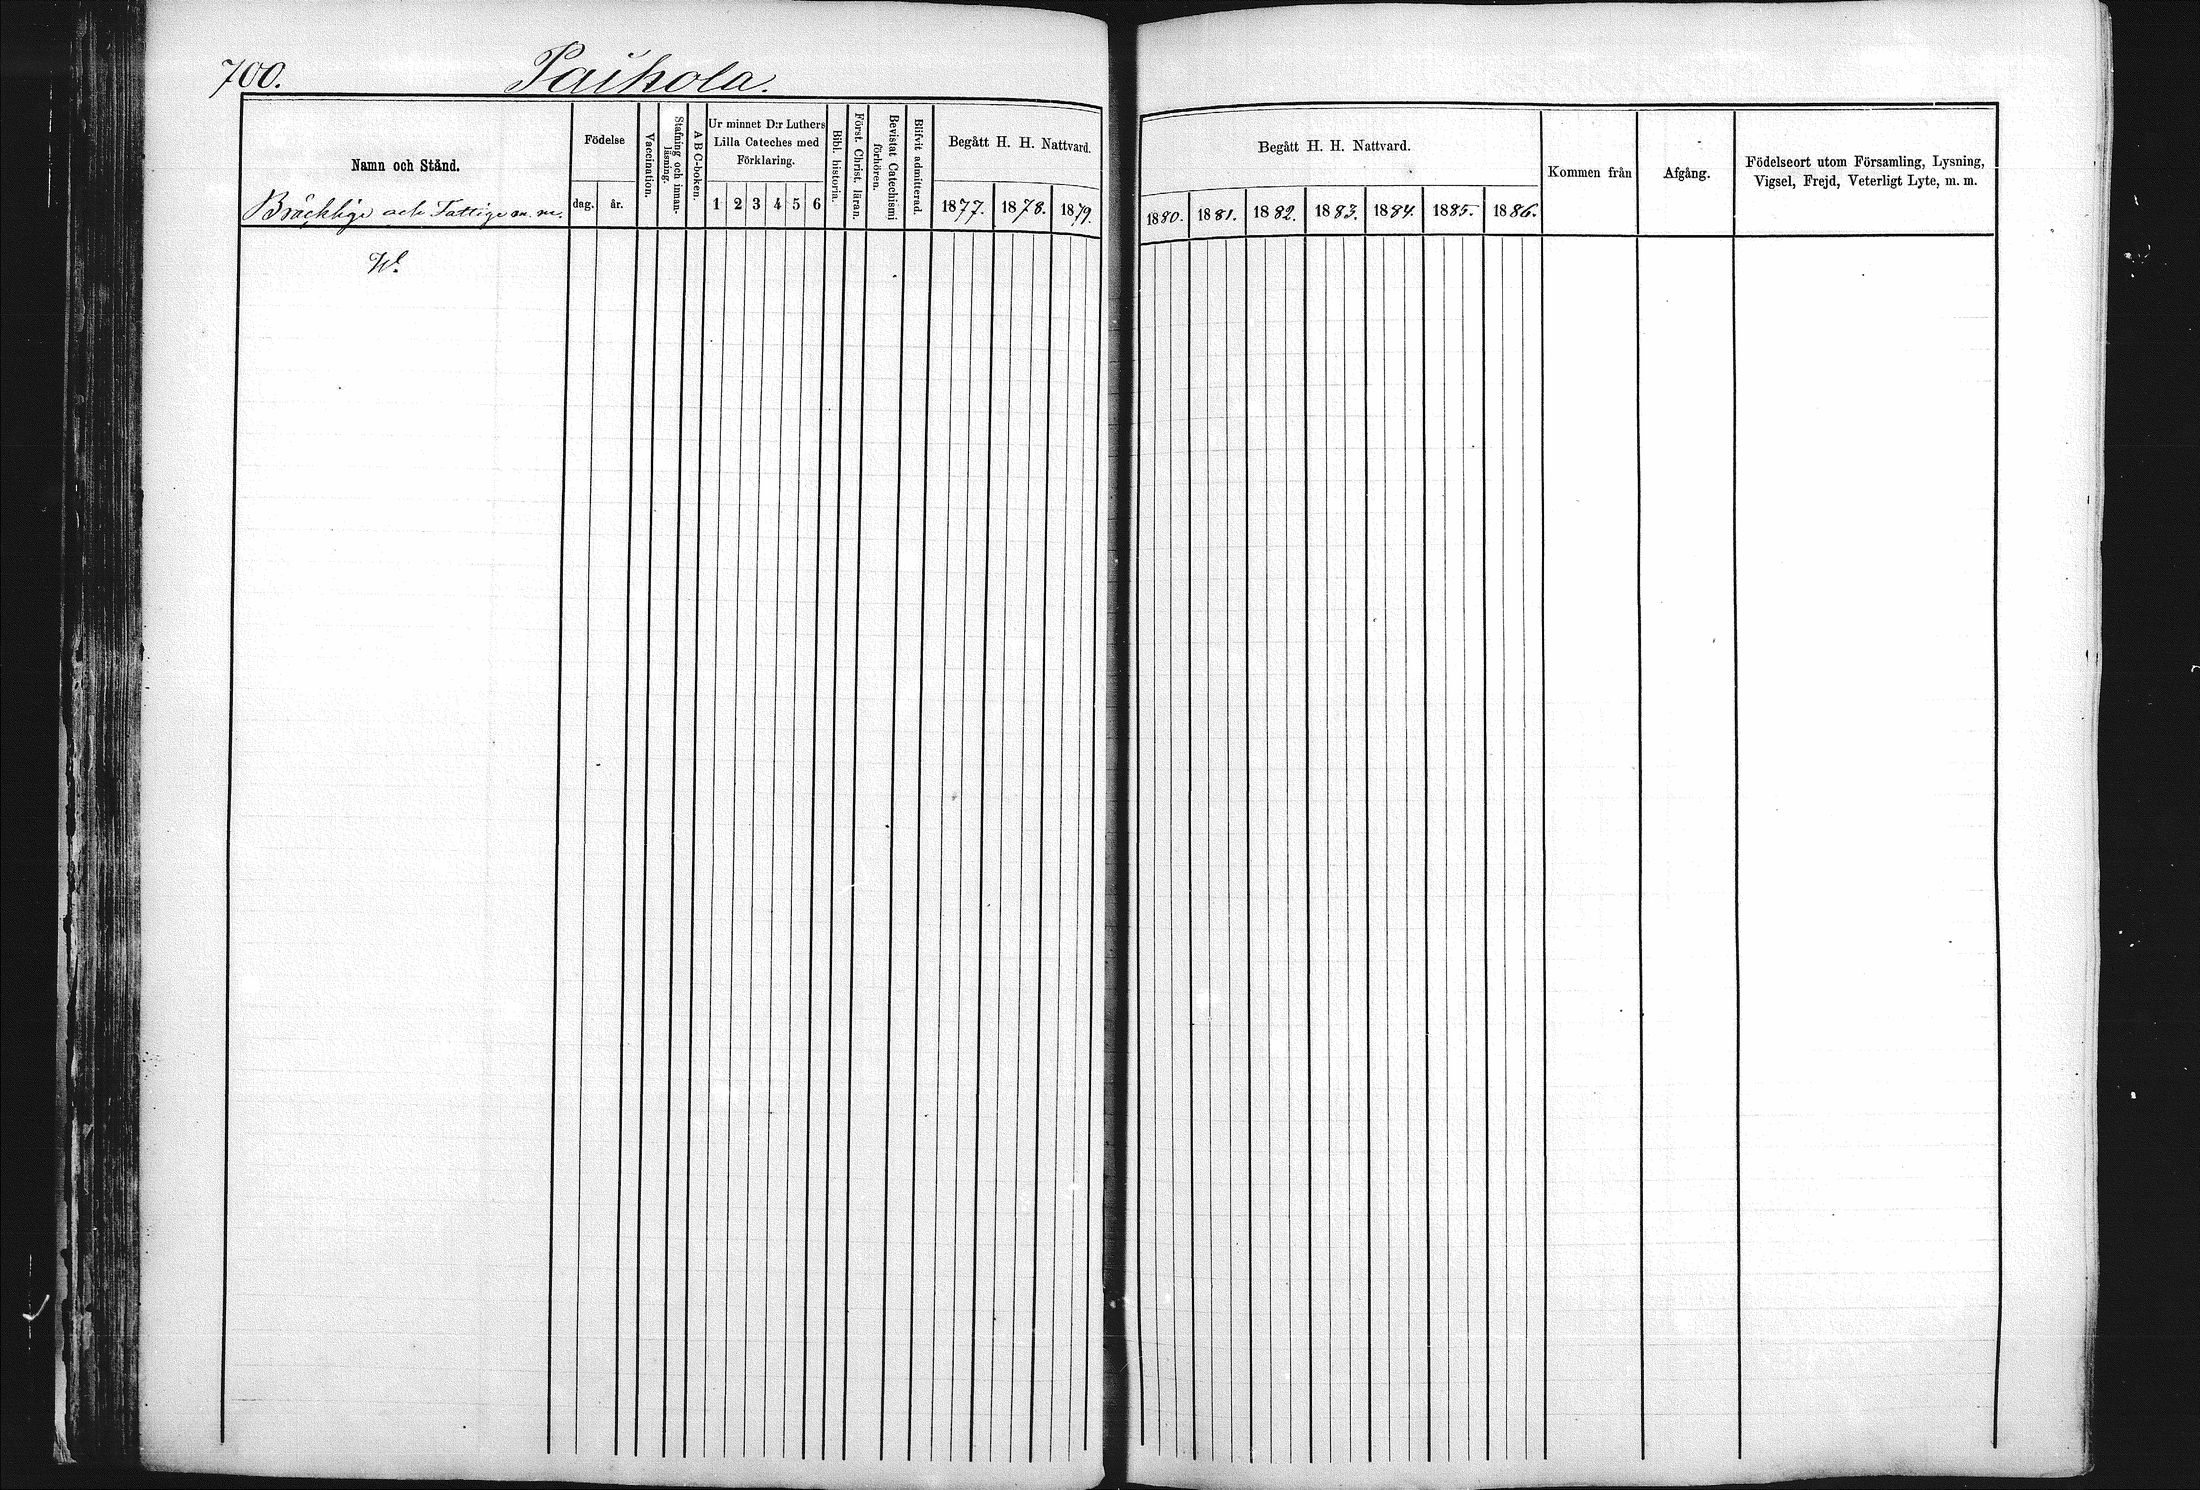 700. Paihola.
Namn och Stånd.
Bräcklige och Fattige m. m.
Födelse
dag. år.
Vaccination.
Stafning och innan-
läsning.
A B C-boken.
Ur minnet D:r Luthers
Lilla Cateches med
Förklaring.
1 2 3 4 5 6
Bibl. historia.
Först. Christ. läran.
Bevistat Catechismi
förhören.
Blifvit admitterad.
Begått H. H. Nattvard.
1877. 1878. 1879.
Begått H. H. Nattvard.
1880. 1881. 1882. 1883. 1884. 1885. 1886.
Kommen från
Afgång.
Födelseort utom Församling, Lysning,
Vigsel, Frejd, Veterligt Lyte, m. m.